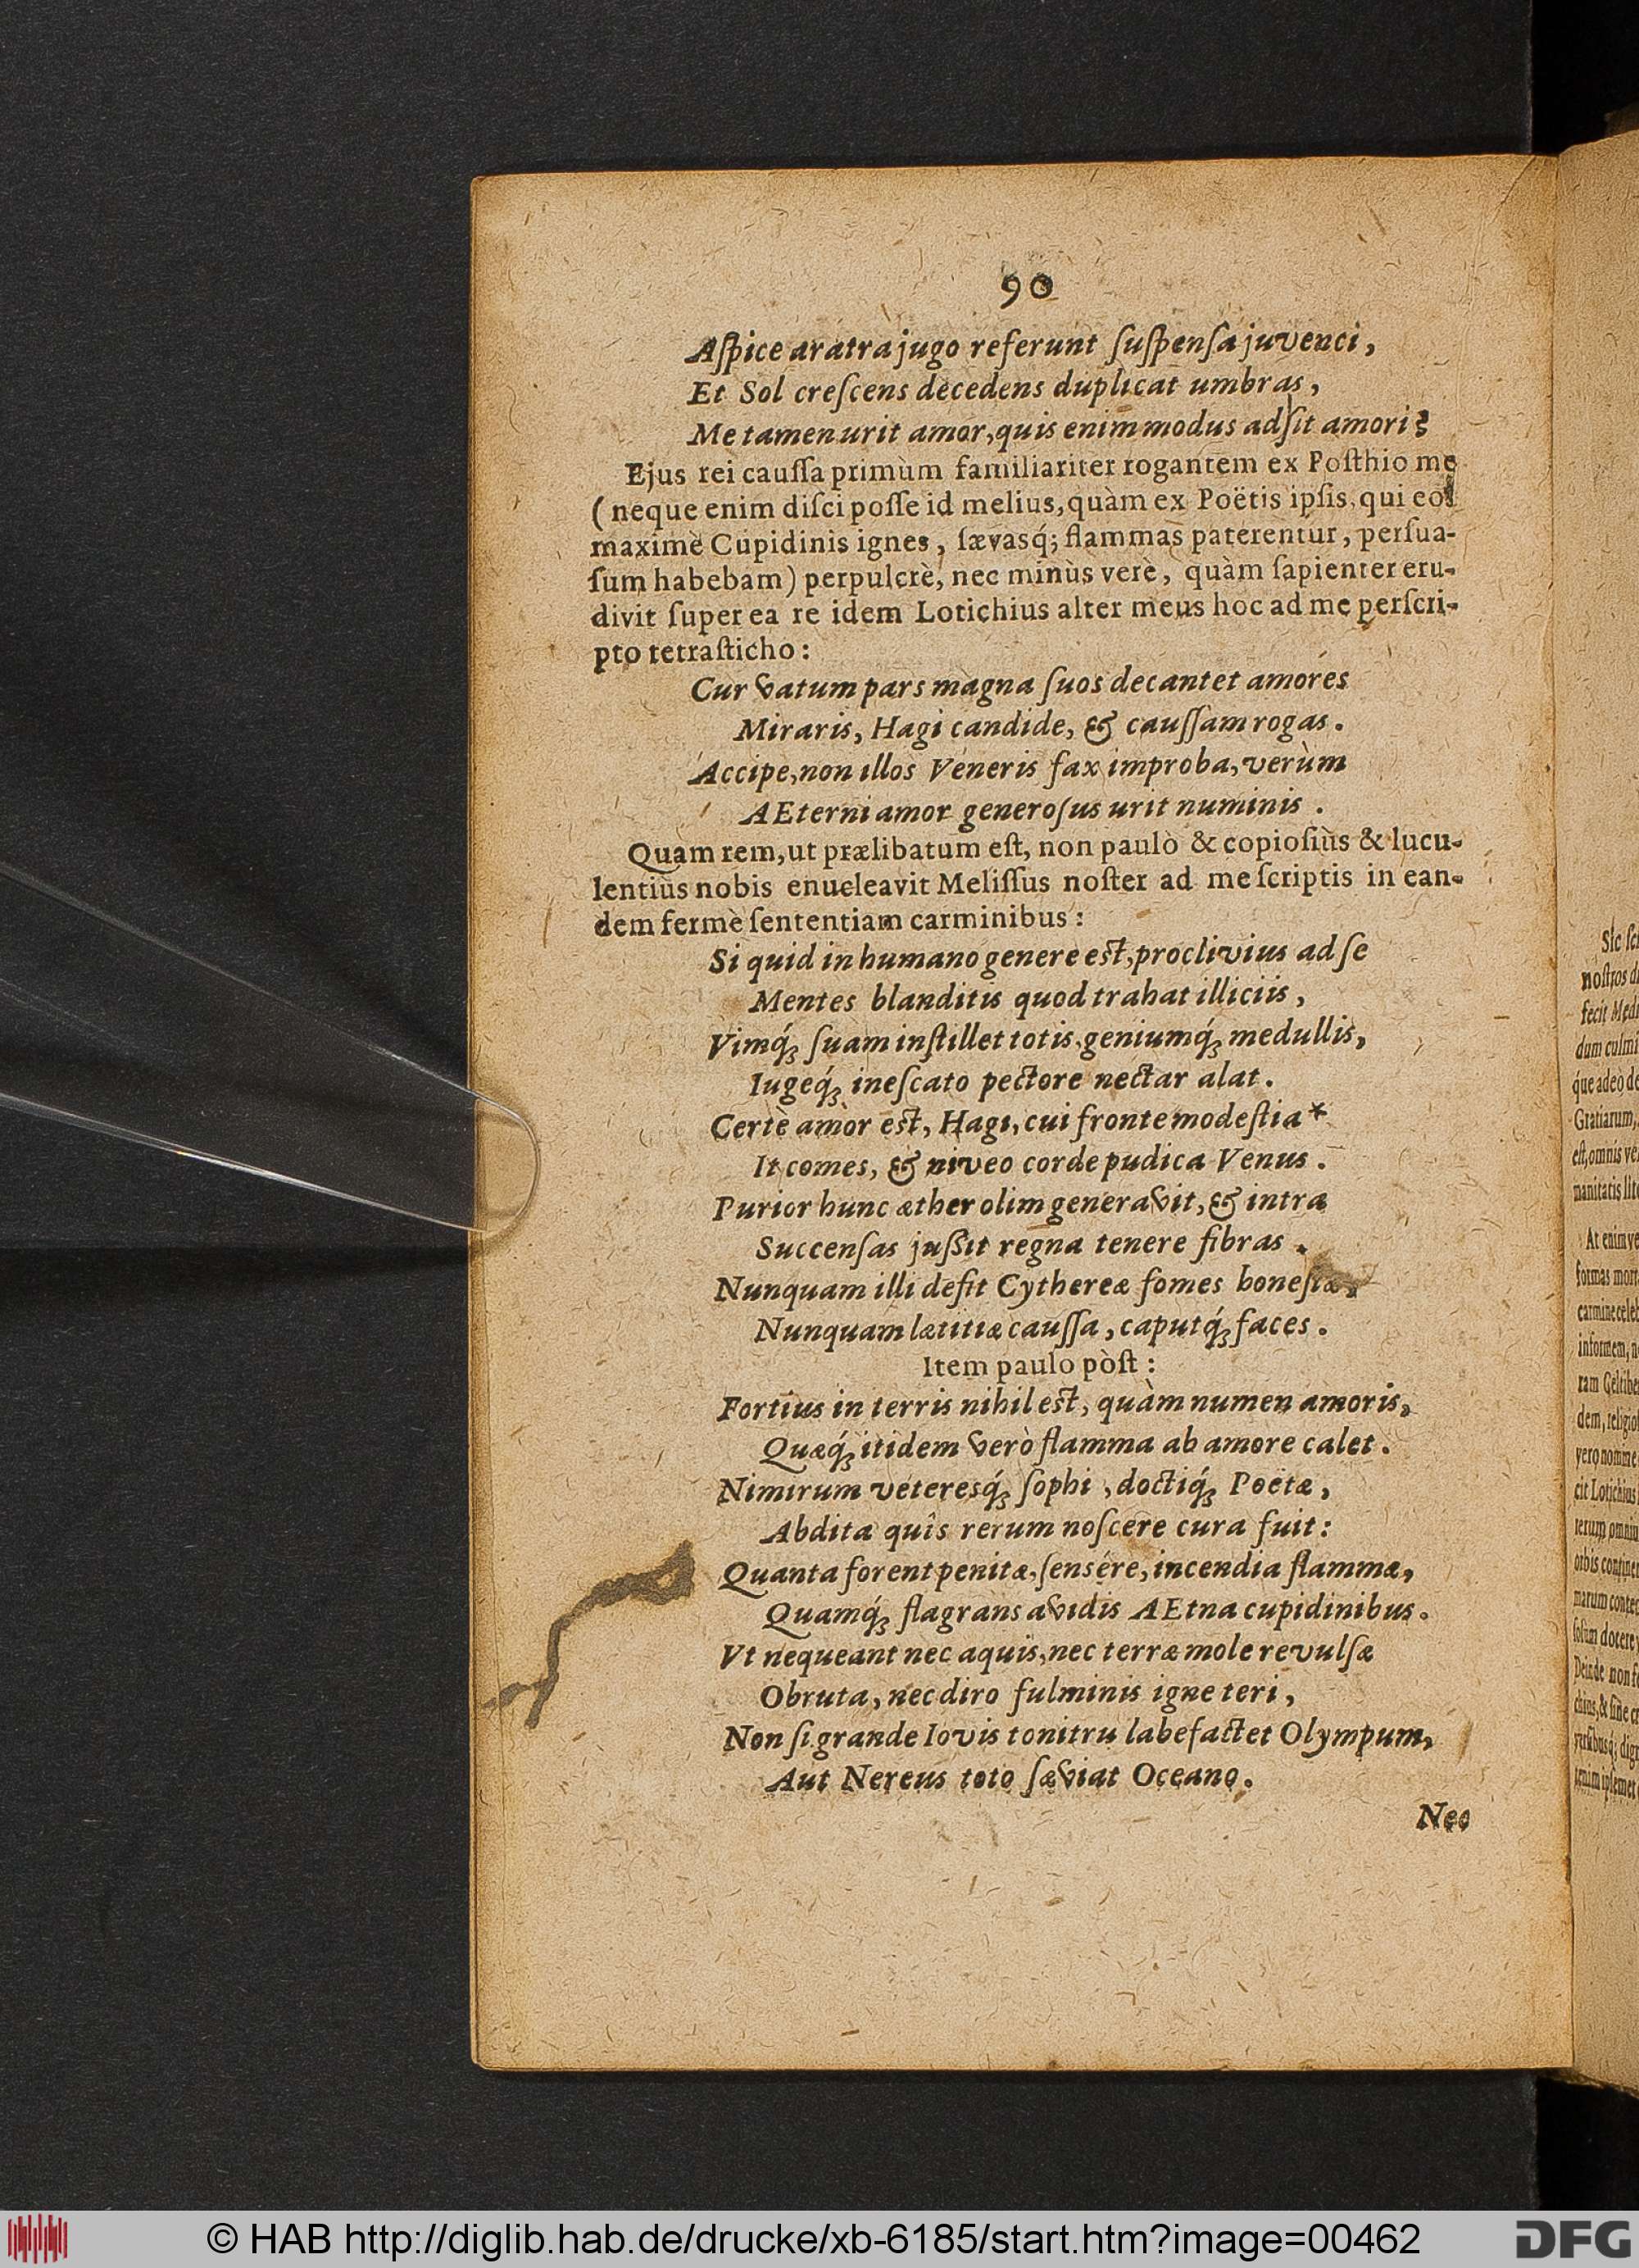 90
Aſpice aratra jugo referunt ſuſpenſa juvenci,
Et Sol creſcens decedens duplicat umbras,
Me tamen urit amor, quis enim modus adſit amori?
Ejus rei cauſſa primùm familiariter rogantem ex Poſthio me
(neque enim diſci poſſe id melius, quàm ex Poëtis ipſis, qui eos
maximè Cupidinis ignes, ſævasq́; flammas paterentur, perſua-
ſum habebam) perpulcrè, nec minùs verè, quàm ſapienter eru-
divit ſuper ea re idem Lotichius alter meus hoc ad me perſcri-
pto tetraſticho:
Cur vatum pars magna ſuos decantet amores
Miraris, Hagi candide, & cauſſam rogas.
Accipe, non illos Veneris fax improba, verùm
AEterni amor generoſus urit numinis.
Quam rem, ut prælibatum eſt, non paulò & copioſiùs & lucu-
lentiùs nobis enucleavit Meliſſus noſter ad me ſcriptis in ean-
dem fermè ſententiam carminibus:
Si quid in humano genere eſt, proclivius ad ſe
Mentes blanditis quod trahat illiciis,
Vimq́; ſuam inſtillet totis, geniumq́; medullis,
Iugeq́; ineſcato pectore nectar alat.
Certè amòr eſt, Hagi, cui fronte modeſtia*
It comes, & niveo corde pudica Venus.
Purior hunc æther olim generavit, & intra
Succenſas juſſit regna tenere fibras.
Nunquam illi deſit Cythereæ fomes honeſtæ,
Nunquam lætitiæ cauſſa, caputq́; faces.
Item paulo pòſt:
Fortius in terris nihil eſt, quàm numen amoris,
Quæq́; itidem verò flamma ab amore calet.
Nimirum veteresq́; ſophi, doctiq́; Poëtæ,
Abdita quîs rerum noſcere cura fuit:
Quanta forent penitæ, ſensére, incendia flammæ,
Quamq́; flagrans avidis AEtna cupidinibus.
Vt nequeant nec aquis, nec terræ mole revulſæ
Obruta, nec diro fulminis igne teri,
Non ſi grande Iovis tonitru labefactet Olympum,
Aut Nereus toto ſæviat Oceano.
Nec
© HAB http://diglib.hab.de/drucke/xb-6185/start.htm?image=00462
DFG